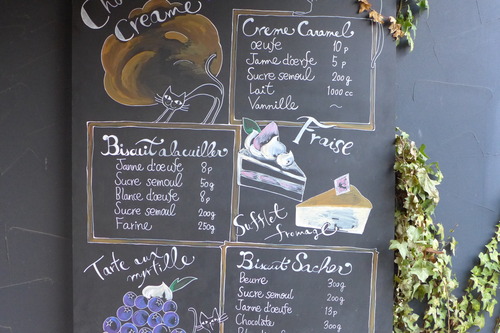 Creame
Creme Caramel
œufe 10 p
Janne d'œrfe 5 p
Sucre semoul 200g
Lait 1000 cc
Vannille ~
Biscuit a la cuiller
Janne d'œufe 8 p
Sucre semoul 50g
Blanse d'œufe 8 p
Sucre semoul 200g
Farine 250g
Fraise
Sufflet
fromage
Tarte aux
myrtille
Biscuit Sacher
Beurre 300g
Sucre semoul 200g
Janne d'œufe 13p
Chocolate 300g